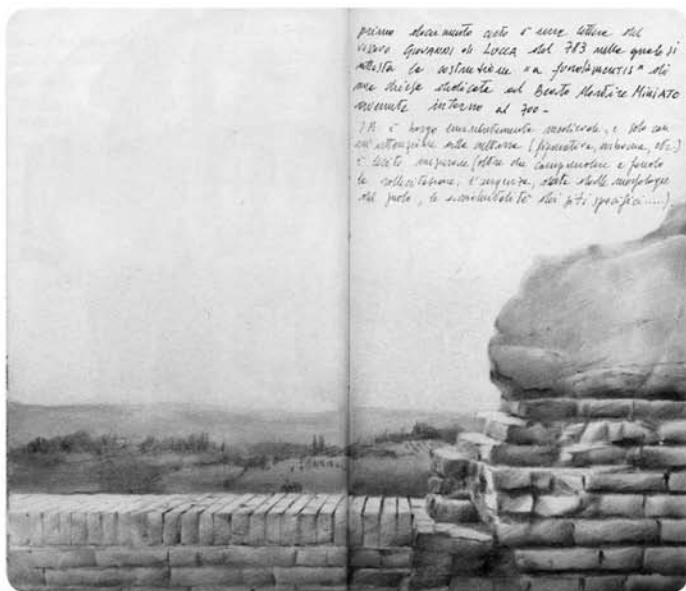 primo documento certo è una lettera del
vescovo GIOVANNI di LUCCA del 783 nella quale si
attesta la costruzione "a fundamentis" di
una chiesa dedicata al Beato Martire MINIATO
avvenuta intorno al 700 -
è borgo eminentemente medievale, e solo con
un'attenzione alla (figurativa, , etc.)
è lecito (oltre che comprendere a fondo
la sollecitazione, l'urgenza, data dalla morfologia
del suolo, la dei siti specifici.....)